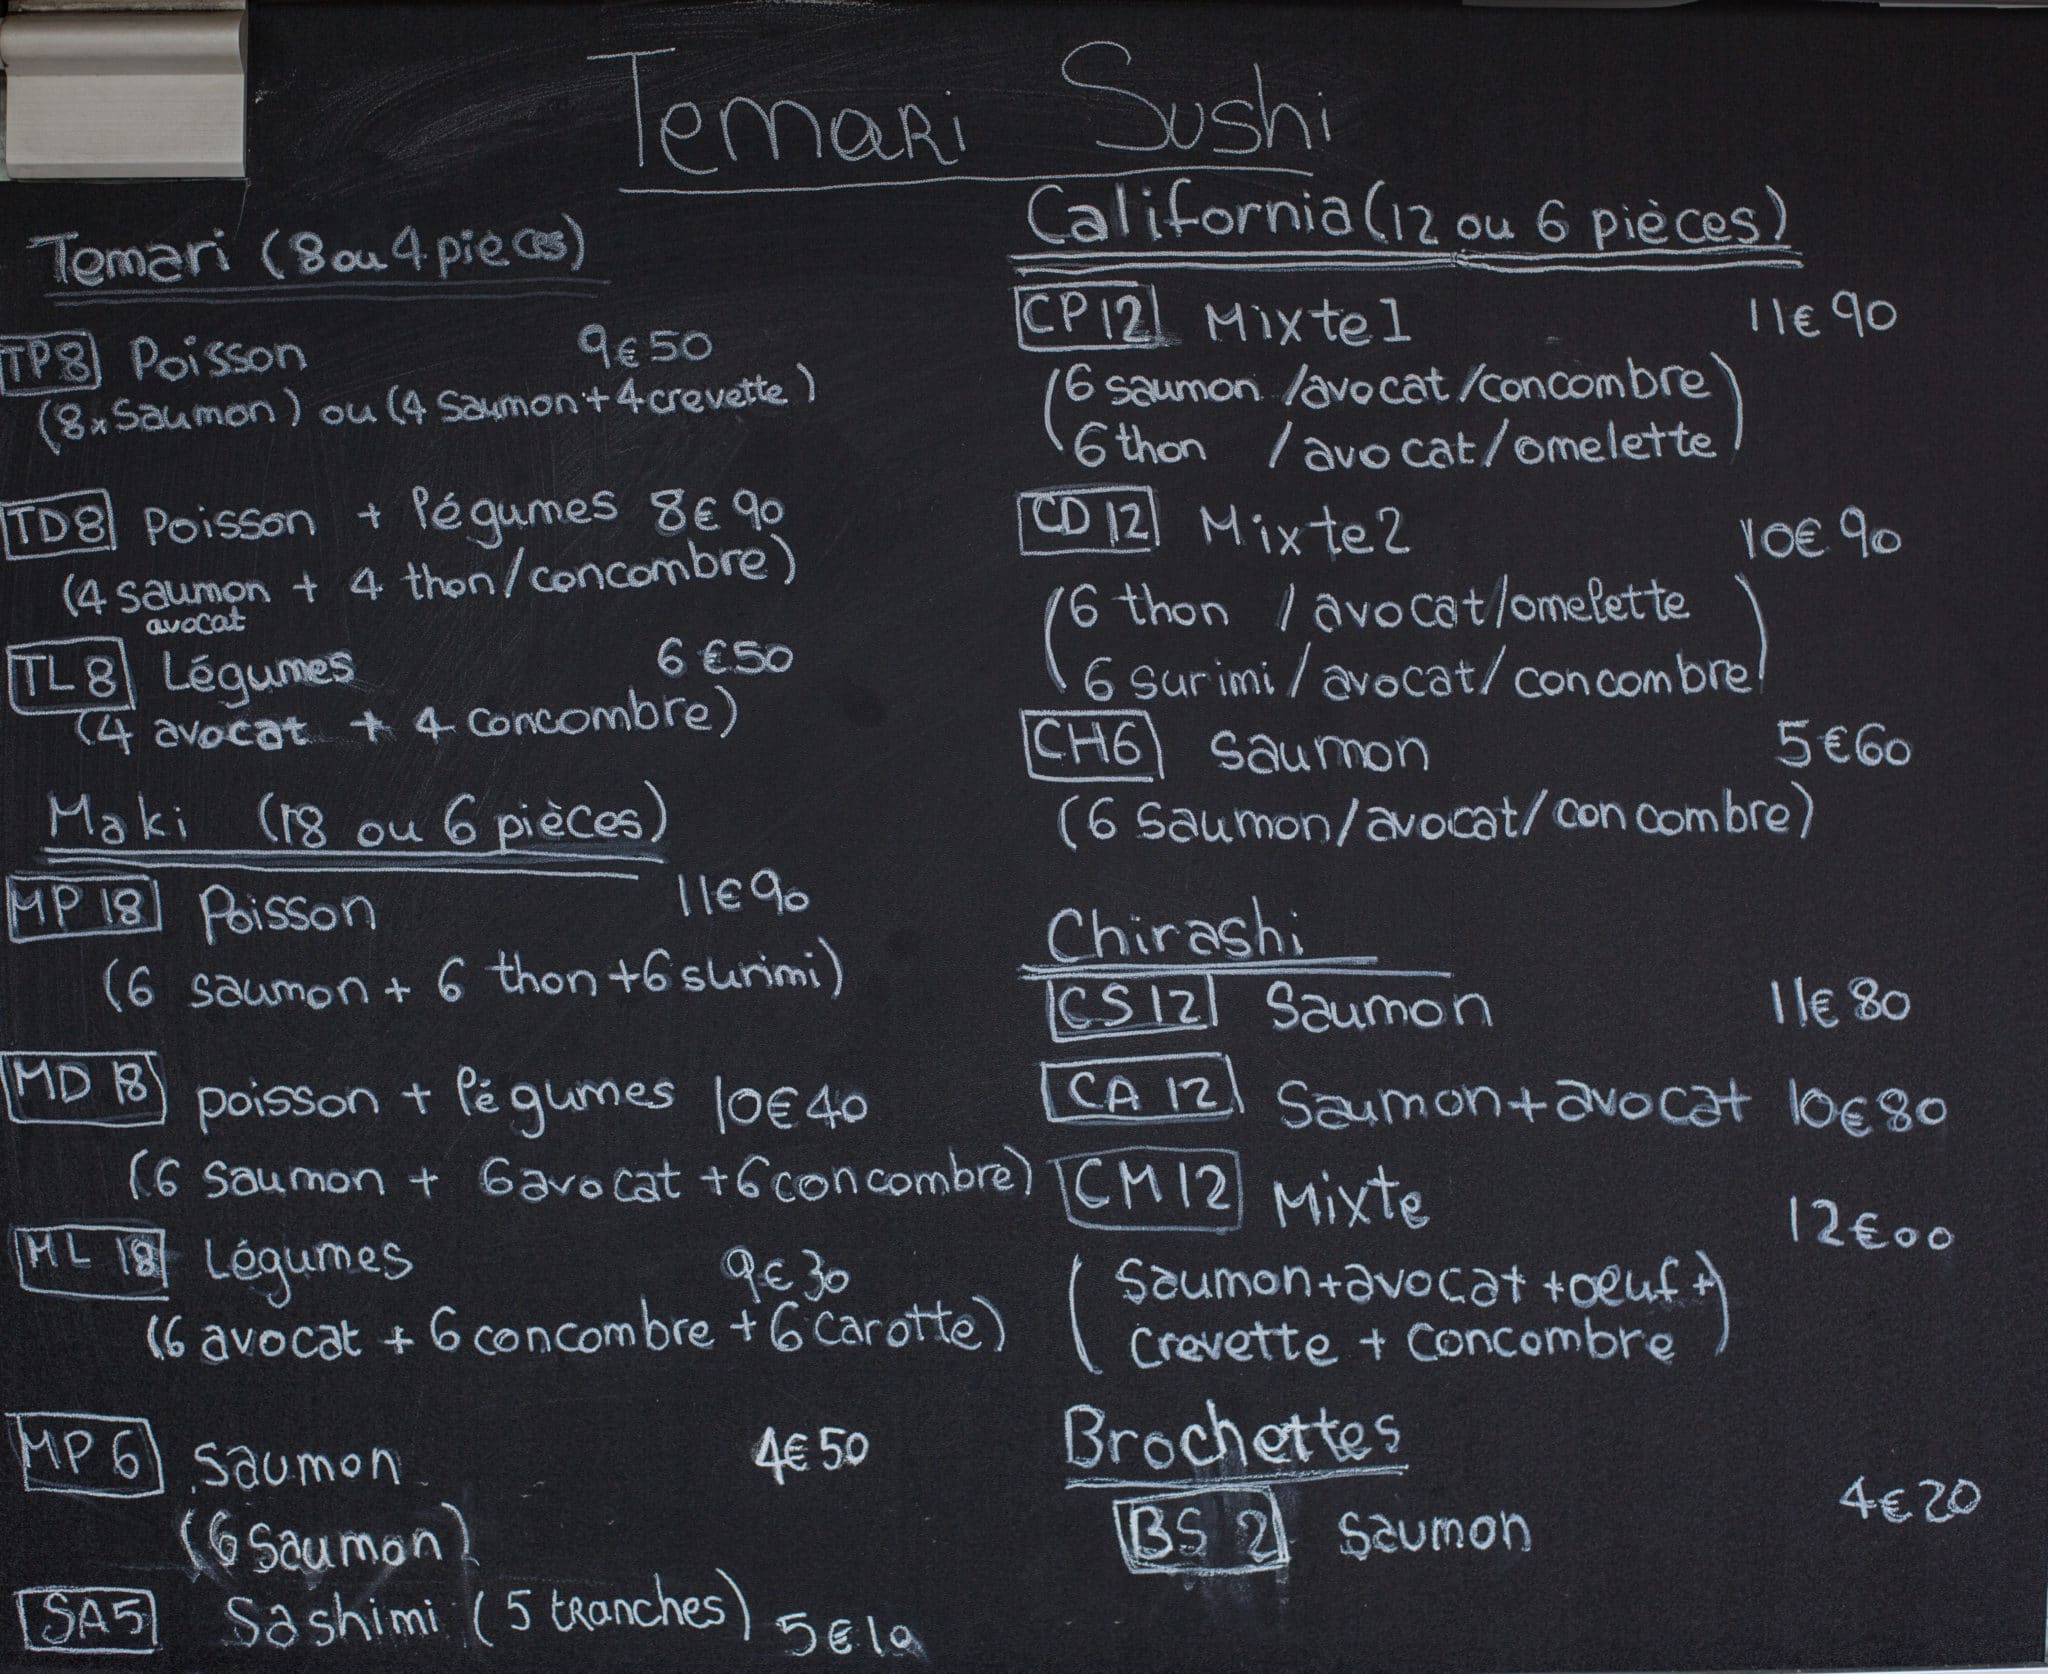 Temari Sushi
Temari (8 ou 4 pièces)
TP8 Poisson 9€50
(8x Saumon) ou (4 Saumon + 4 crevette)
TD8 Poisson + légumes 8€90
(4 saumon + 4 thon/concombre)
avocat
TL8 Légumes 6€50
(4 avocat + 4 concombre)
Maki (18 ou 6 pièces)
MP 18 Poisson 11€90
(6 saumon + 6 thon + 6 surimi)
MD 18 poisson + légumes 10€40
(6 saumon + 6 avocat + 6 concombre)
ML 18 Légumes 9€30
(6 avocat + 6 concombre + 6 carotte)
MP 6 saumon 4€50
(6 saumon)
SA5 Sashimi (5 tranches) 5€10
California (12 ou 6 pièces)
CP12 Mixte1 11€90
(6 saumon /avocat /concombre
6 thon /avocat/omelette)
CD 12 Mixte2 10€90
(6 thon /avocat/omelette
6 surimi/avocat/concombre)
CH6 saumon 5€60
(6 saumon/avocat/concombre)
Chirashi
CS12 Saumon 11€80
CA 12 Saumon+avocat 10€80
CM12 Mixte 12€00
(Saumon+avocat+oeuf+
crevette + concombre)
Brochettes
BS 2 saumon 4€20